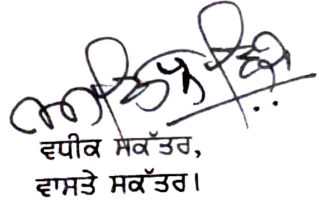 ਵਧੀਕ ਸਕੱਤਰ,
ਵਾਸਤੇ ਸਕੱਤਰ।